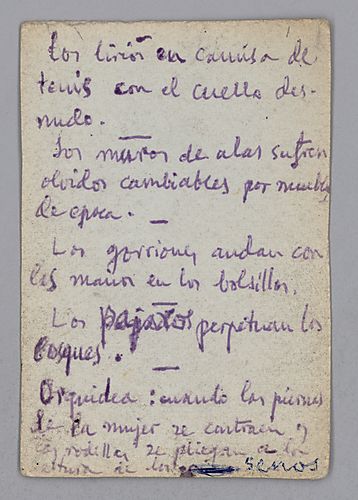 Los lirios en camisa de
tenis con el cuello des-
nudo. —
Los muros de alas sufren
olvidos cambiables por muebles
de epoca. —
Los gorriones andan con
las manos en los bolsillos.
—
Los pajaros perpetuan los
bosques.
—
Orquidea: cuando las piernas
de la mujer se contraen y
las rodillas se pliegan a la
altura de los senos